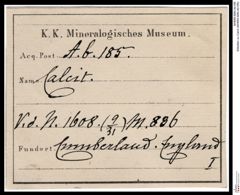 K. K. Mineralogisches Museum.
Acq. Post A.b. 185.
Name Calcit.
V.d. N. 1608. (9/31) M. 836
Fundort Cumberland. England
I